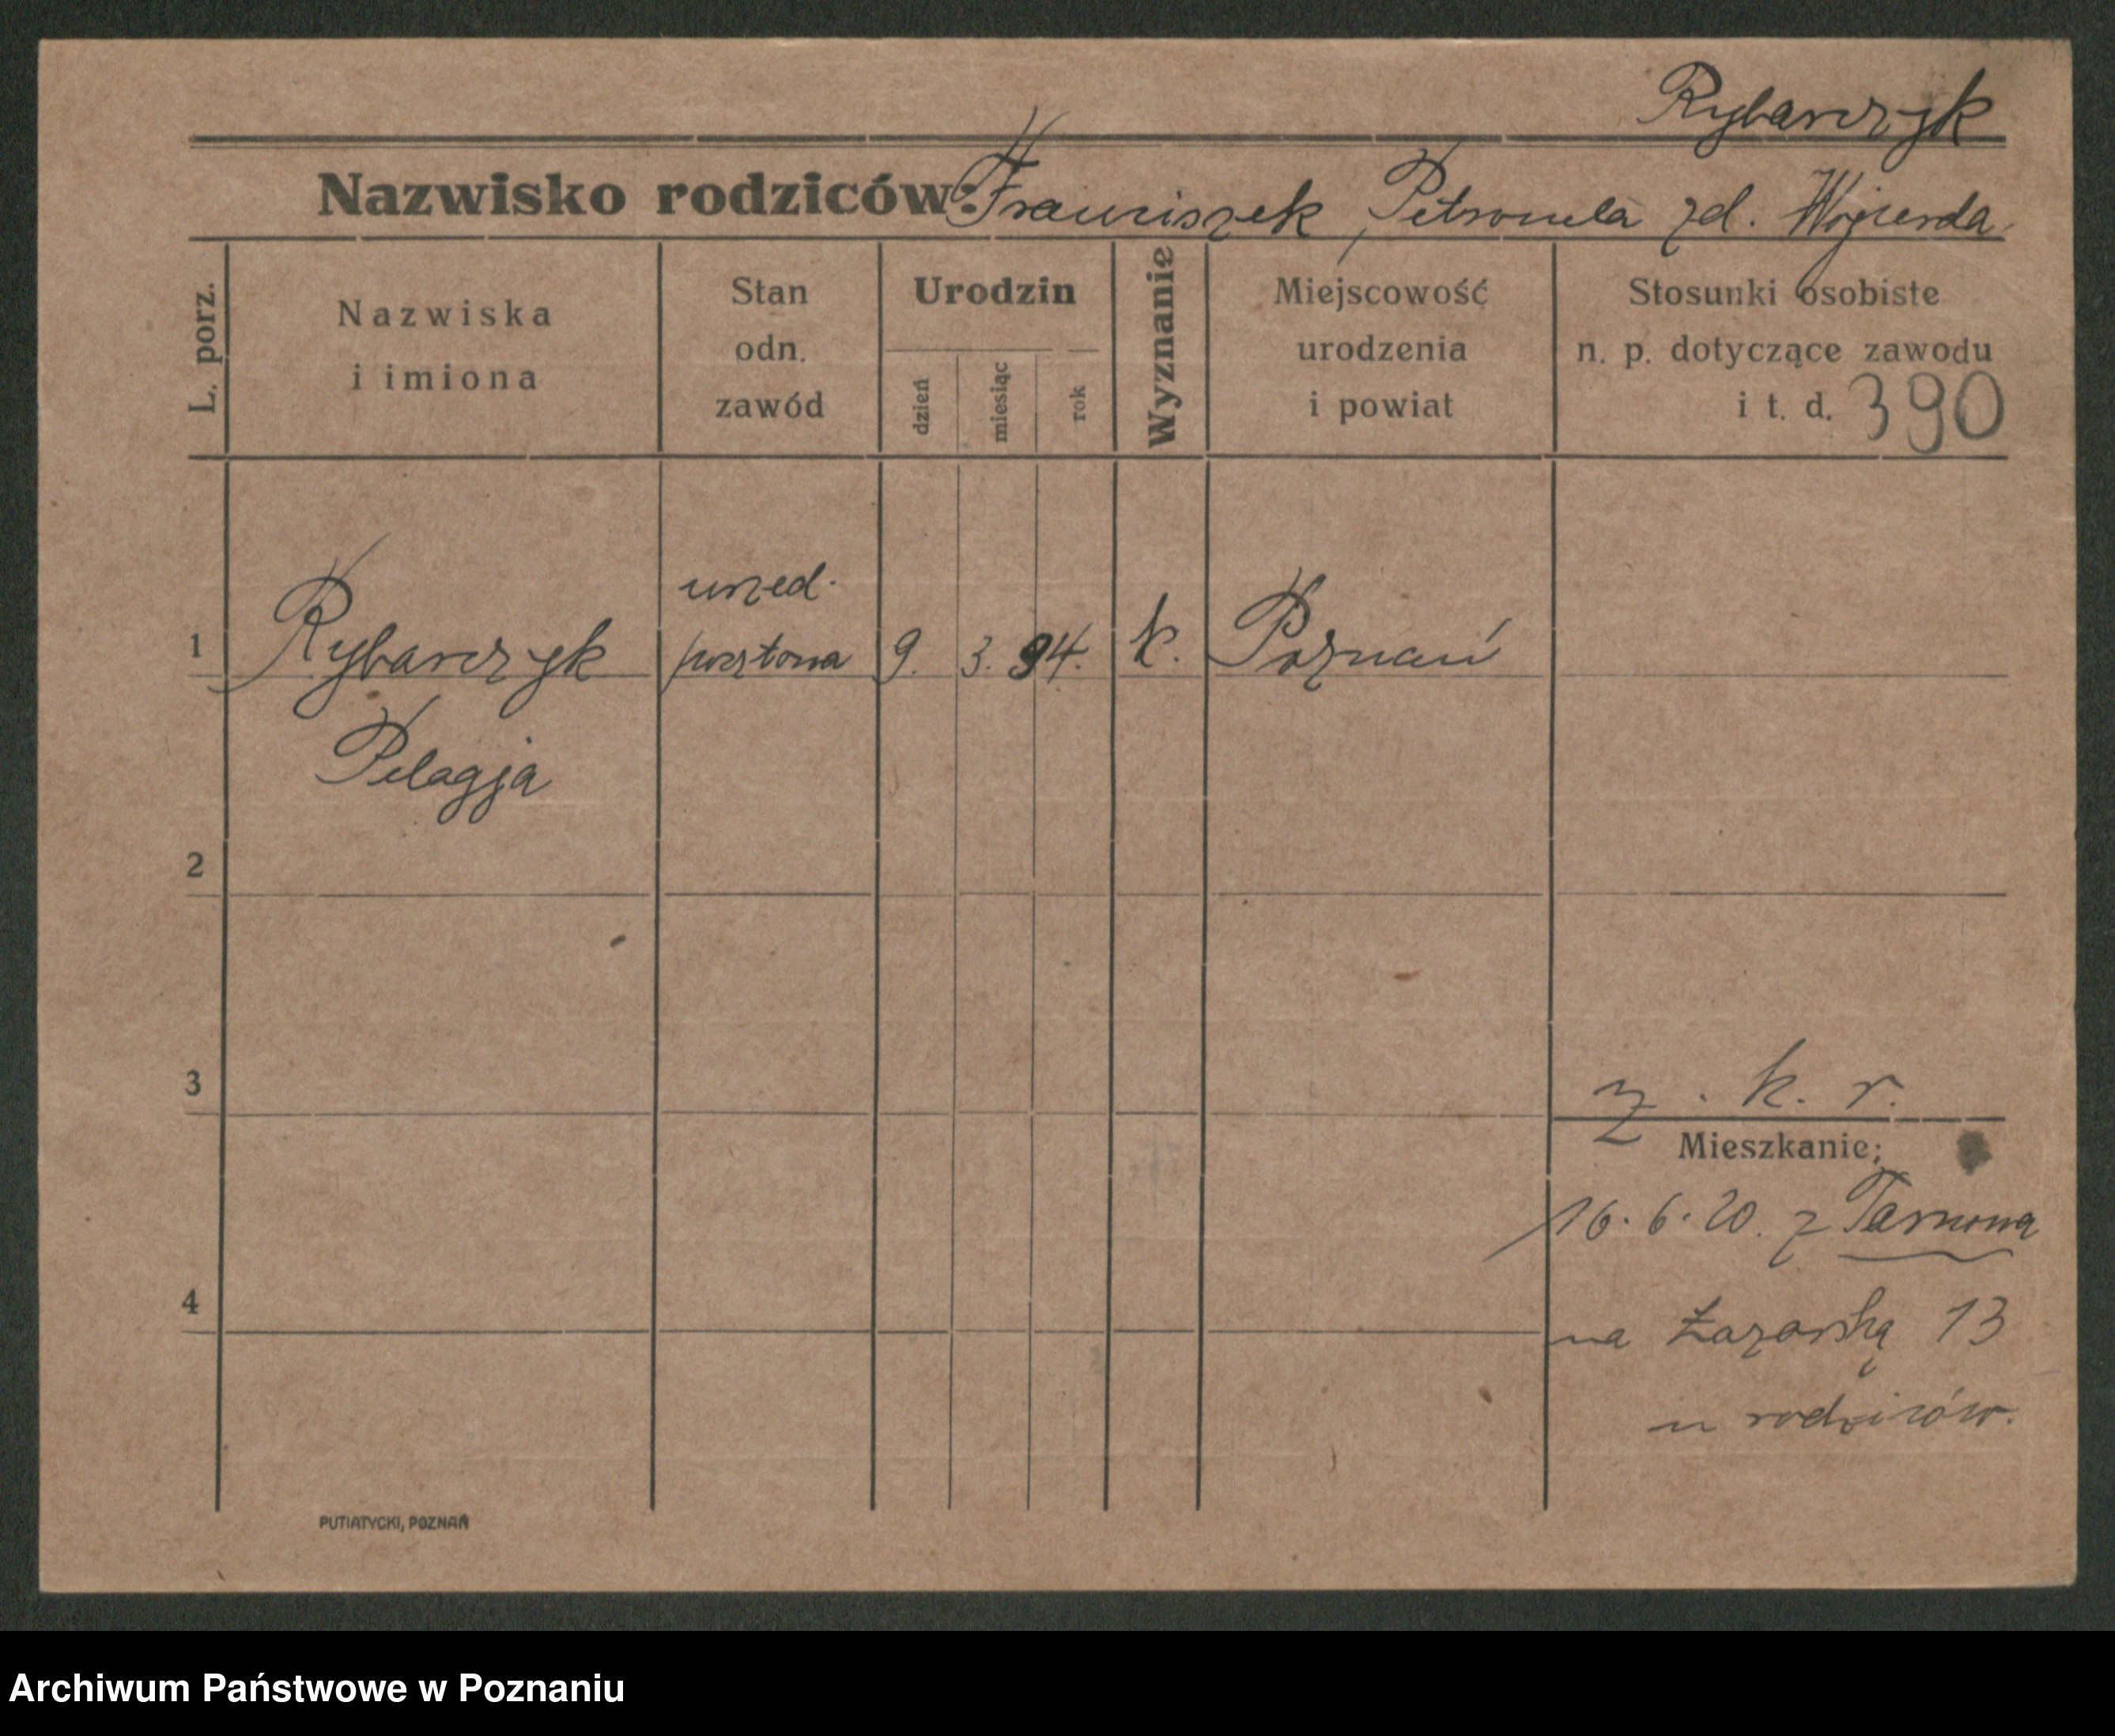 Rybarczyk
Nazwisko rodziców: Franciszek, Petronela zd. Wojcierda
L. porz.
Nazwiska i imiona
Stan odn. zawód
Urodzin
dzień
miesiąc
rok
Wyznanie
Miejscowość urodzenia i powiat
Stosunki osobiste n. p. dotyczące zawodu i t. d. 390
1 Rybarczyk urzed. pocztowa 9. 3. 94. k. Poznań
Pelagja
2
3
z. k. r.
Mieszkanie;
16. 6. 20. z Tarnowa
4
na Łazarską 13
u rodziców.
PUTIATYCKI, POZNAŃ
Archiwum Państwowe w Poznaniu